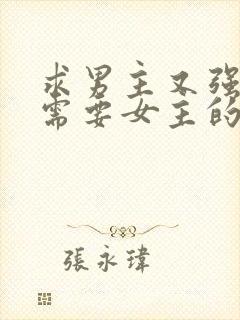 求男主又强
需要女主的
張永瑋